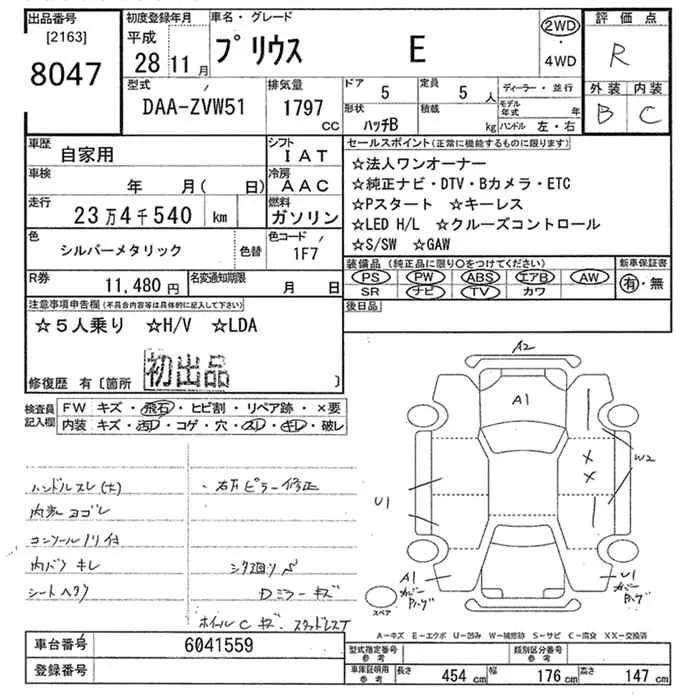 出品番号
[2163]
8047
初度登録年月
平成
28 11月
車名・グレード
プリウス E
2WD
・
4WD
評価点
R
外装 内装
B C
型式
DAA-ZVW51
排気量
1797
CC
ドア
5
定員
5 人
形状
ハッチB
積載
kg
ディーラー・並行
モデル年式 年
ハンドル 左・右
車歴
自家用
シフト
IAT
車検
年 月( 日)
冷房
AAC
走行
23万4千540 km
燃料
ガソリン
色
シルバーメタリック
色替
色コード
1F7
R券
11,480円
名変通知期限
月 日
セールスポイント(正常に機能するものに限ります)
☆法人ワンオーナー
☆純正ナビ・DTV・Bカメラ・ETC
☆Pスタート ☆キーレス
☆LED H/L ☆クルーズコントロール
☆S/SW ☆GAW
装備品(純正品に限り○をつけてください)
PS PW ABS エアB AW
SR ナビ TV カワ
新車保証書
有・無
後日品
注意事項申告欄(不具合内容等は具体的に記入して下さい)
☆5人乗り ☆H/V ☆LDA
初出品
修復歴 有〔箇所 〕
検査員記入欄
FW キズ・飛石・ヒビ割・リペア跡・×要
内装 キズ・汚れ・コゲ・穴・スレ・キレ・破レ
ハンドルスレ(大)
内装ヨゴレ
コンソールノリ付
内バリ キレ
シートヘタリ
・右Fピラー修正
シタ廻りS
Dミラーキズ
ホイールCキズ・スタッドレスT
A2
A1
W2
U1
X
X
A1
カバー
Rバンパ
U1
カバー
Rバンパ
スペア
A-キズ E-エクボ U-凹み W-補修跡 S-サビ C-腐食 X X-交換済
車台番号
6041559
登録番号
型式指定番号
参考
類別区分番号
参考
車庫証明用
参考
長さ 454 cm 幅 176 cm 高さ 147 cm